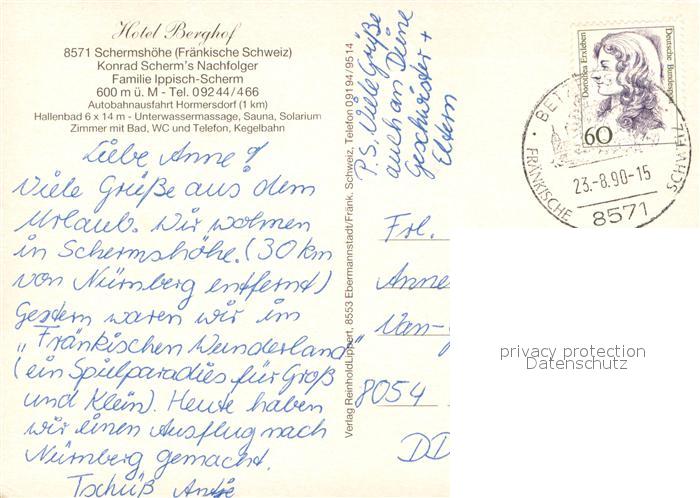 Hotel Berghof
8571 Schermshöhe (Fränkische Schweiz)
Konrad Scherm's Nachfolger
Familie Ippisch-Scherm
600 m ü. M - Tel. 09244/466
Autobahnausfahrt Hormersdorf (1 km)
Hallenbad 6 x 14 m - Unterwassermassage, Sauna, Solarium
Zimmer mit Bad, WC und Telefon, Kegelbahn
Liebe Anne!
Viele Grüße aus dem
Urlaub. Wir wohnen
in Schermshöhe. (30 km
von Nürnberg entfernt)
Gestern waren wir im
„Fränkischen Wunderland"
(ein Spielparadies für Groß
und Klein). Heute haben
wir einen Ausflug nach
Nürnberg gemacht.
Tschüß André
Verlag Reinhold Lippert, 8553 Ebermannstadt/Fränk. Schweiz, Telefon 09194/9514
P.S. Viele Grüße
auch an Deine
Geschwister +
Eltern
Dorothea Erxleben
Deutsche Bundespost
60
FRÄNKISCHE SCHWEIZ
23.-8.90-15
8571
Frl.
Anne
Van-
8054
DD
privacy protection
Datenschutz